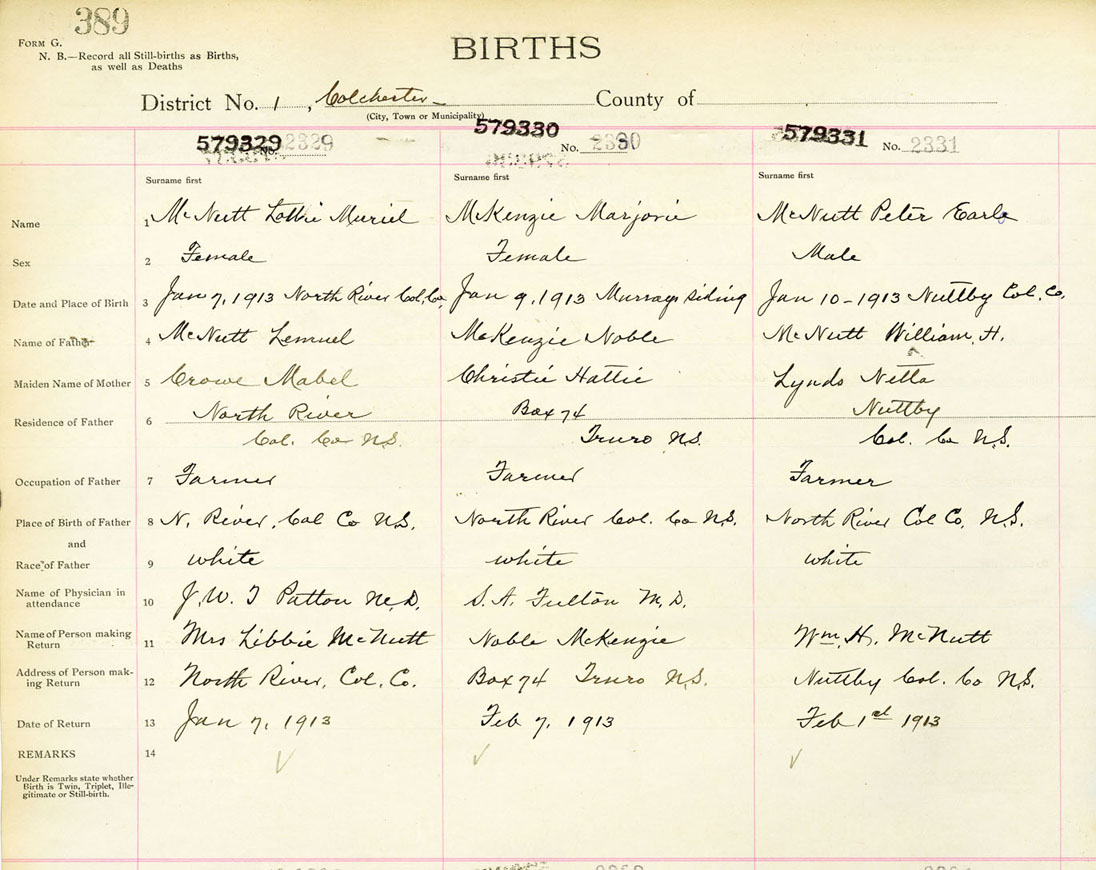 389
FORM G.
N. B.—Record all Still-births as Births,
as well as Deaths
BIRTHS
District No. 1, Colchester County of
(City, Town or Municipality)
579329 No. 2329 579330 No. 2330 579331 No. 2331
Surname first Surname first Surname first
Name 1 McNutt Lottie Muriel McKenzie Marjorie McNutt Peter Earle
Sex 2 Female Female Male
Date and Place of Birth 3 Jan 7, 1913 North River Col, Co, Jan 9, 1913 Murrays Siding Jan 10-1913 Nuttby Col. Co,
Name of Father 4 McNutt Lemuel McKenzie Noble McNutt William, H.
Maiden Name of Mother 5 Crowe Mabel Christie Hattie Lynds Netta
Residence of Father 6 North River Box 74 Nuttby
Col. Co N.S. Truro N.S. Col. Co N.S.
Occupation of Father 7 Farmer Farmer Farmer
Place of Birth of Father 8 N. River, Col Co N.S. North River Col. Co N.S. North River Col Co, N.S.
and
Race of Father 9 white white white
Name of Physician in
attendance 10 J. W. T Patton M.D. S. A. Fulton M, D.
Name of Person making
Return 11 Mrs Libbie McNutt Noble McKenzie Wm. H. McNutt
Address of Person mak-
ing Return 12 North River, Col. Co. Box 74 Truro N.S. Nuttby Col. Co N.S.
Date of Return 13 Jan 7, 1913 Feb 7, 1913 Feb 1st 1913
REMARKS 14
Under Remarks state whether
Birth is Twin, Triplet, Ille-
gitimate or Still-birth.